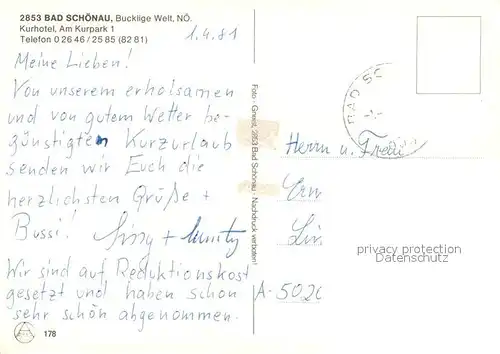 2853 BAD SCHÖNAU, Bucklige Welt, NÖ.
Kurhotel, Am Kurpark 1
Telefon 0 26 46 / 25 85 (82 81)
1.4.81
Meine Lieben!
Von unserem erholsamen
und von gutem Wetter be-
günstigten Kurzurlaub
senden wir Euch die
herzlichsten Grüße +
Bussi!
Wir sind auf Reduktionskost
gesetzt und haben schon
sehr schön abgenommen.
178
Foto - Gneist, 2853 Bad Schönau - Nachdruck verboten!
BAD SC
Herrn u. Frau
Ern
Lin
A-5020
privacy protection
Datenschutz